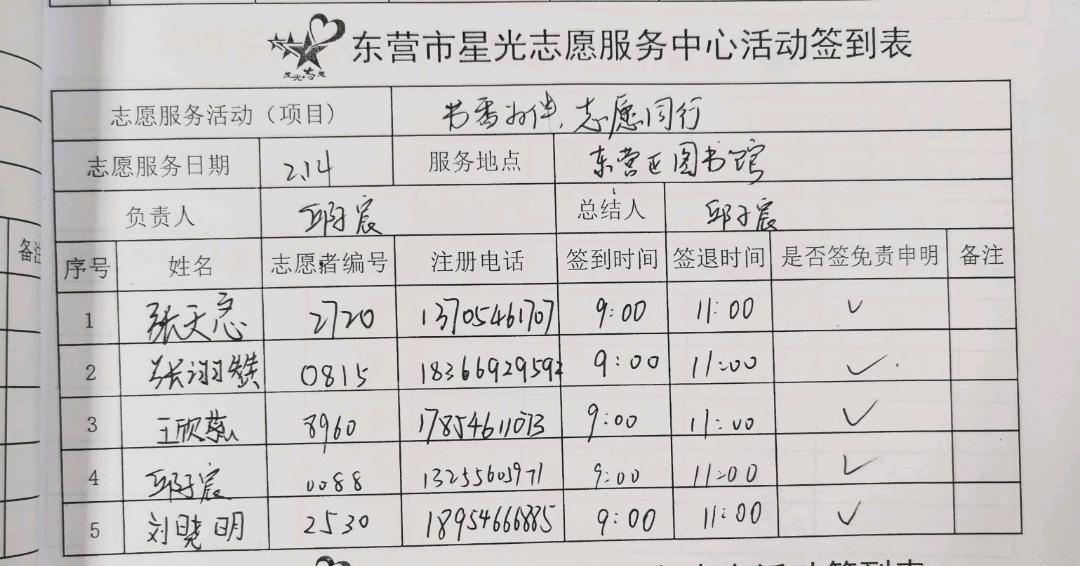 东营市星光志愿服务中心活动签到表
星光志愿
志愿服务活动（项目） 书香为伴，志愿同行
志愿服务日期 2.14 服务地点 东营区图书馆
负责人 邱子宸 总结人 邱子宸
备注
序号 姓名 志愿者编号 注册电话 签到时间 签退时间 是否签免责申明 备注
1 张天意 2720 13705461707 9:00 11:00 ✓
2 张翊 0815 18366929592 9:00 11:00 ✓
3 王欣蕊 8960 17854611073 9:00 11:00 ✓
4 邱子宸 0088 13255605971 9:00 11:00 ✓
5 刘晓明 2530 18954666885 9:00 11:00 ✓